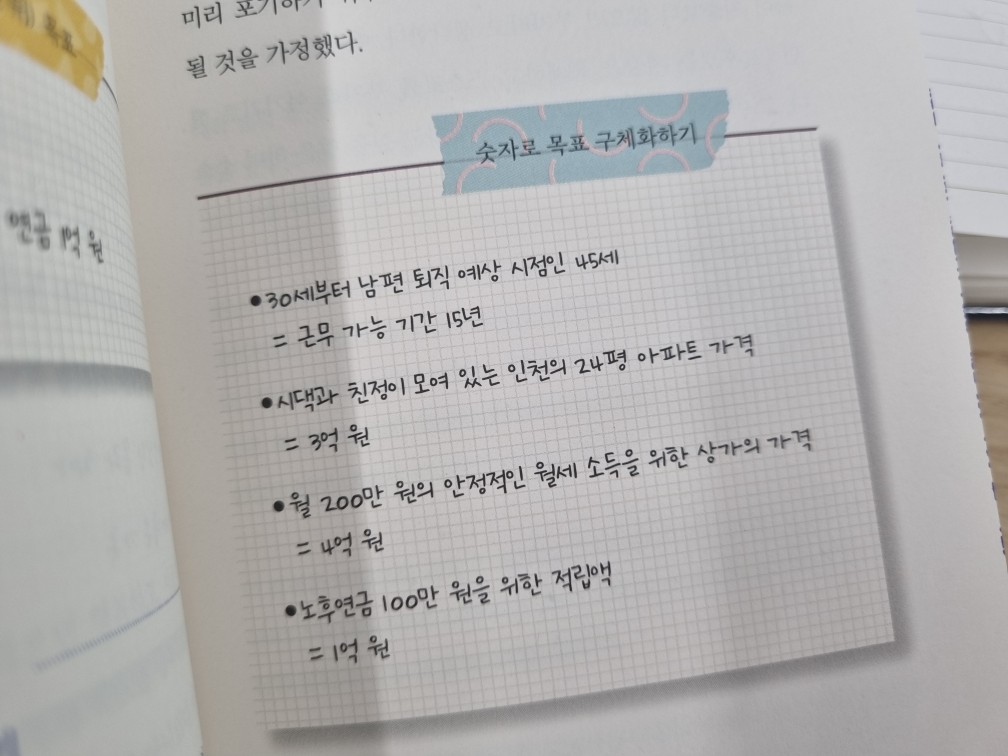 미리 포기하기
될 것을 가정했다.
목표
연금 1억 원
숫자로 목표 구체화하기
•30세부터 남편 퇴직 예상 시점인 45세
= 근무 가능 기간 15년
•시댁과 친정이 모여 있는 인천의 24평 아파트 가격
= 3억 원
•월 200만 원의 안정적인 월세 소득을 위한 상가의 가격
= 4억 원
•노후연금 100만 원을 위한 적립액
= 1억 원